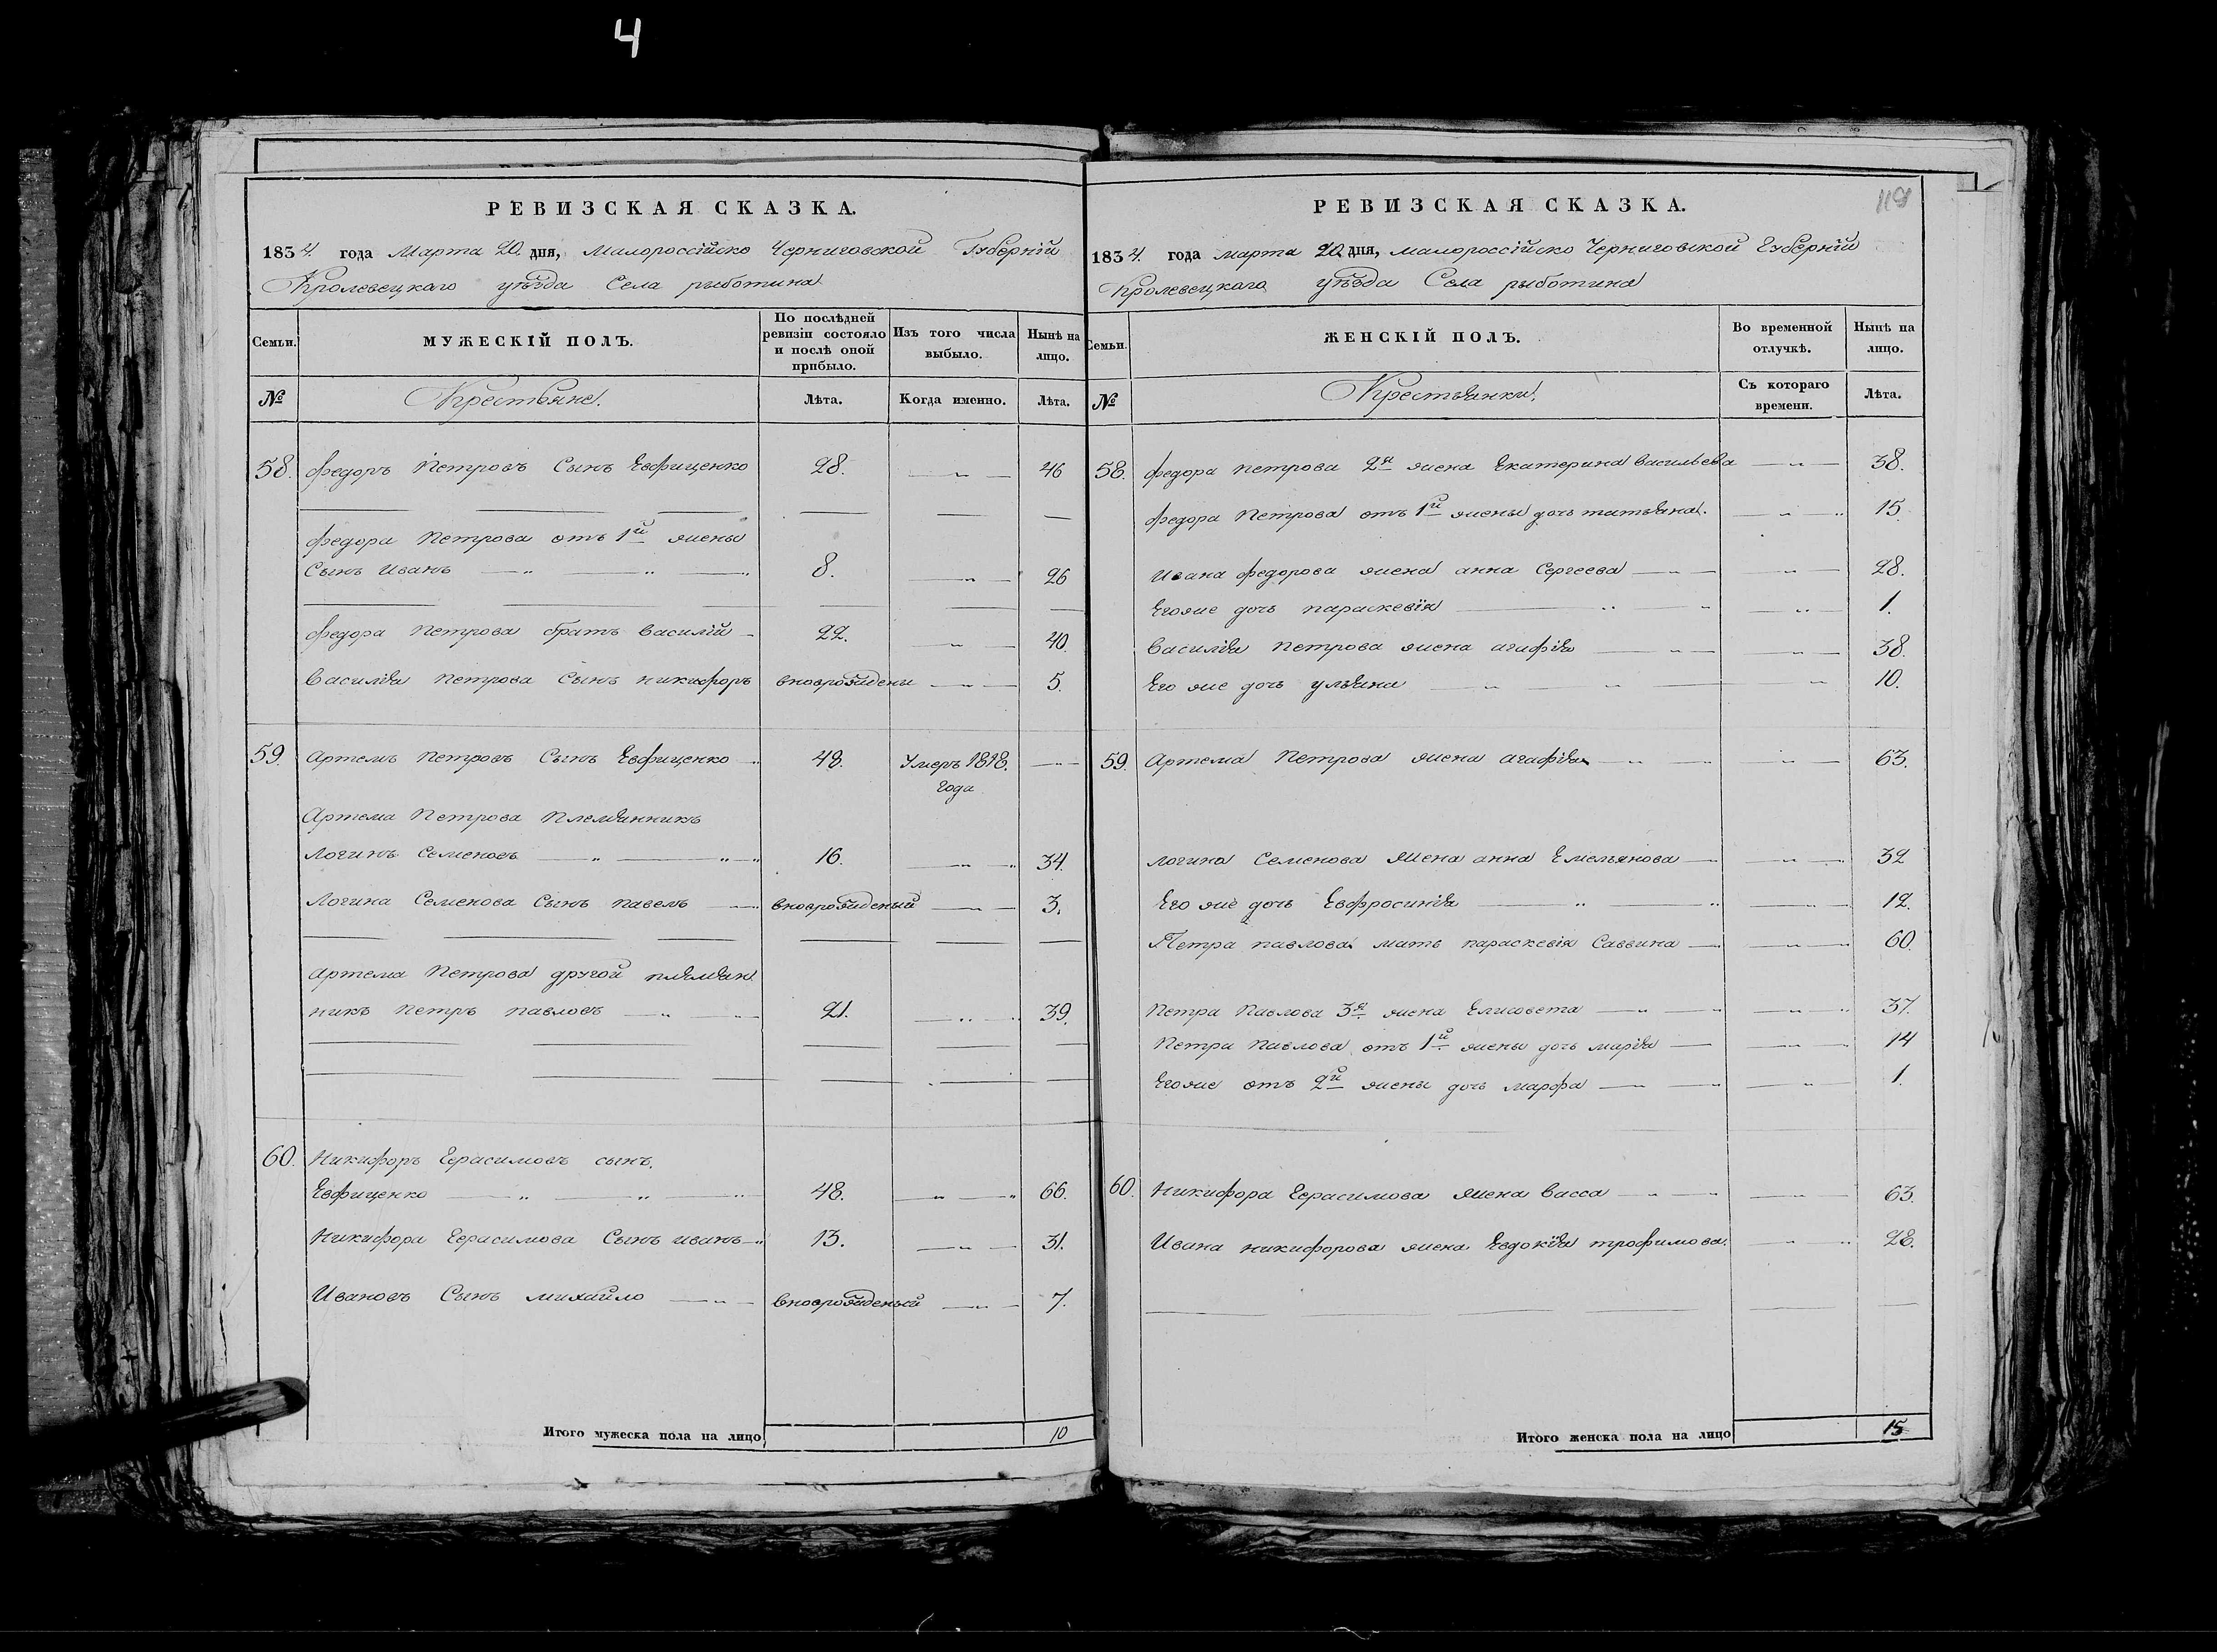 4
РЕВИЗСКАЯ СКАЗКА.
1834. года Марта 20. дня, Малороссійско Черниговской Губерній
Кролевецкаго уѣзда Села рыботина
Семьи.
МУЖЕСКІЙ ПОЛЪ.
По послѣдней ревизіи состояло и послѣ оной прибыло.
Изъ того числа выбыло.
Нынѣ на лицо.
№
Крестьяне.
Лѣта.
Когда именно.
Лѣта.
58. федоръ Петровъ Сынъ Евфиценко 28. 46
федора Петрова отъ 1й жены
Сынъ Иванъ 8. 26
федора Петрова братъ Василій 22. 40.
Василія Петрова Сынъ никифоръ вноврождени 5.
59. Артемъ Петровъ Сынъ Евфиценко 48. Умеръ 1818.
года
Артема Петрова Племянникъ
Логинъ Семеновъ 16. 34.
Логина Семенова Сынъ павелъ вноврожденый 3.
Артема Петрова другой племян
никъ Петръ павловъ 21. 39.
60. Никифоръ Герасимовъ сынъ.
Евфиценко 48. 66.
Никифора Герасимова Сынъ иванъ 13. 31.
Ивановъ Сынъ михайло вноврожденый 7.
Итого мужеска пола на лицо 10
РЕВИЗСКАЯ СКАЗКА.
1834. года марта 20. дня, малороссійско Черниговской Губерній
Кролевецкаго уѣзда Села рыботина
Семьи.
ЖЕНСКІЙ ПОЛЪ.
Во временной отлучкѣ.
Нынѣ на лицо.
№
Крестьянки.
Съ котораго времени.
Лѣта.
58. федора петрова 2я жена Екатерина васильева 38.
федора Петрова отъ 1й жены дочь татьяна. 15.
Ивана федорова жена анна Сергеева 28.
Егоже дочь параскевія 1.
Василія Петрова жена агафія 38.
Его же дочь ульяна 10.
59. Артема Петрова жена агафія 63.
логина Семенова жена анна Емельянова 32
Его же дочь Евфросинія 12.
Петра павлова мать параскевія Саввина 60.
Петра Павлова 3я жена Елисовета 37.
Петра Павлова отъ 1й жены дочь марія 14
Егоже отъ 2й жены дочь марфа 1.
60. Никифора Герасимова жена васса 63.
Ивана никифорова жена Евдокія трофимова. 28.
Итого женска пола на лицо 15